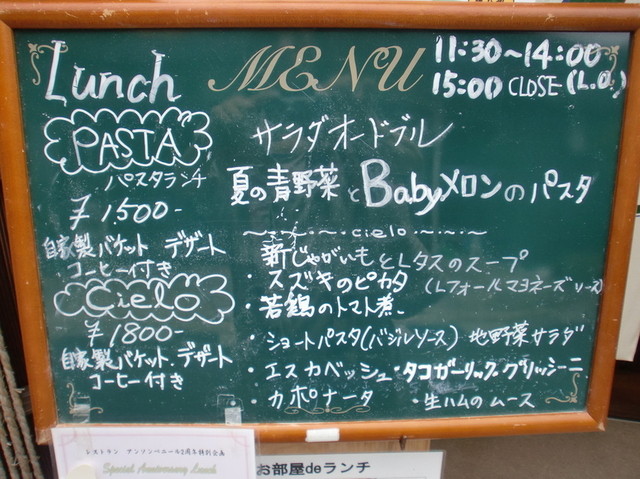 Lunch MENU 11:30~14:00 (L.O.)
15:00 CLOSE
PASTA サラダオードブル
パスタランチ 夏の青野菜とBabyメロンのパスタ
¥1500-
自家製バケット デザート
コーヒー付き
~・~・~・~cielo~・~・~・~
新じゃがいもとレタスのスープ
・スズキのピカタ(レフォールマヨネーズソース)
・若鶏のトマト煮
・ショートパスタ(バジルソース) 地野菜サラダ
・エスカベッシュ・タコガーリック グリッシーニ
・カポナータ ・生ハムのムース
Cielo
¥1800-
自家製バケット.デザート
コーヒー付き
レストラン アンソンベニール2周年特別企画
Special Anniversary Lunch
お部屋deランチ